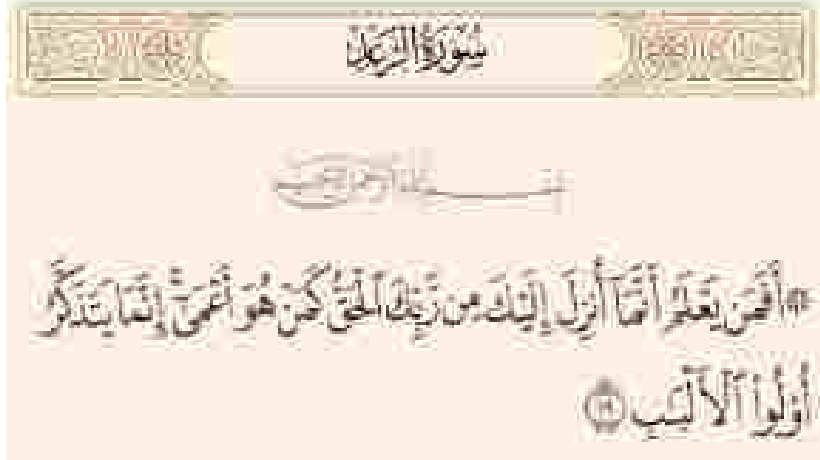 سُورَةُ الرَّعْدِ
بِسْمِ اللَّهِ الرَّحْمَٰنِ الرَّحِيمِ
۞ أَفَمَن يَعْلَمُ أَنَّمَآ أُنزِلَ إِلَيْكَ مِن رَّبِّكَ ٱلْحَقُّ كَمَنْ هُوَ أَعْمَىٰٓ ۚ إِنَّمَا يَتَذَكَّرُ
أُو۟لُوا۟ ٱلْأَلْبَٰبِ ١٩